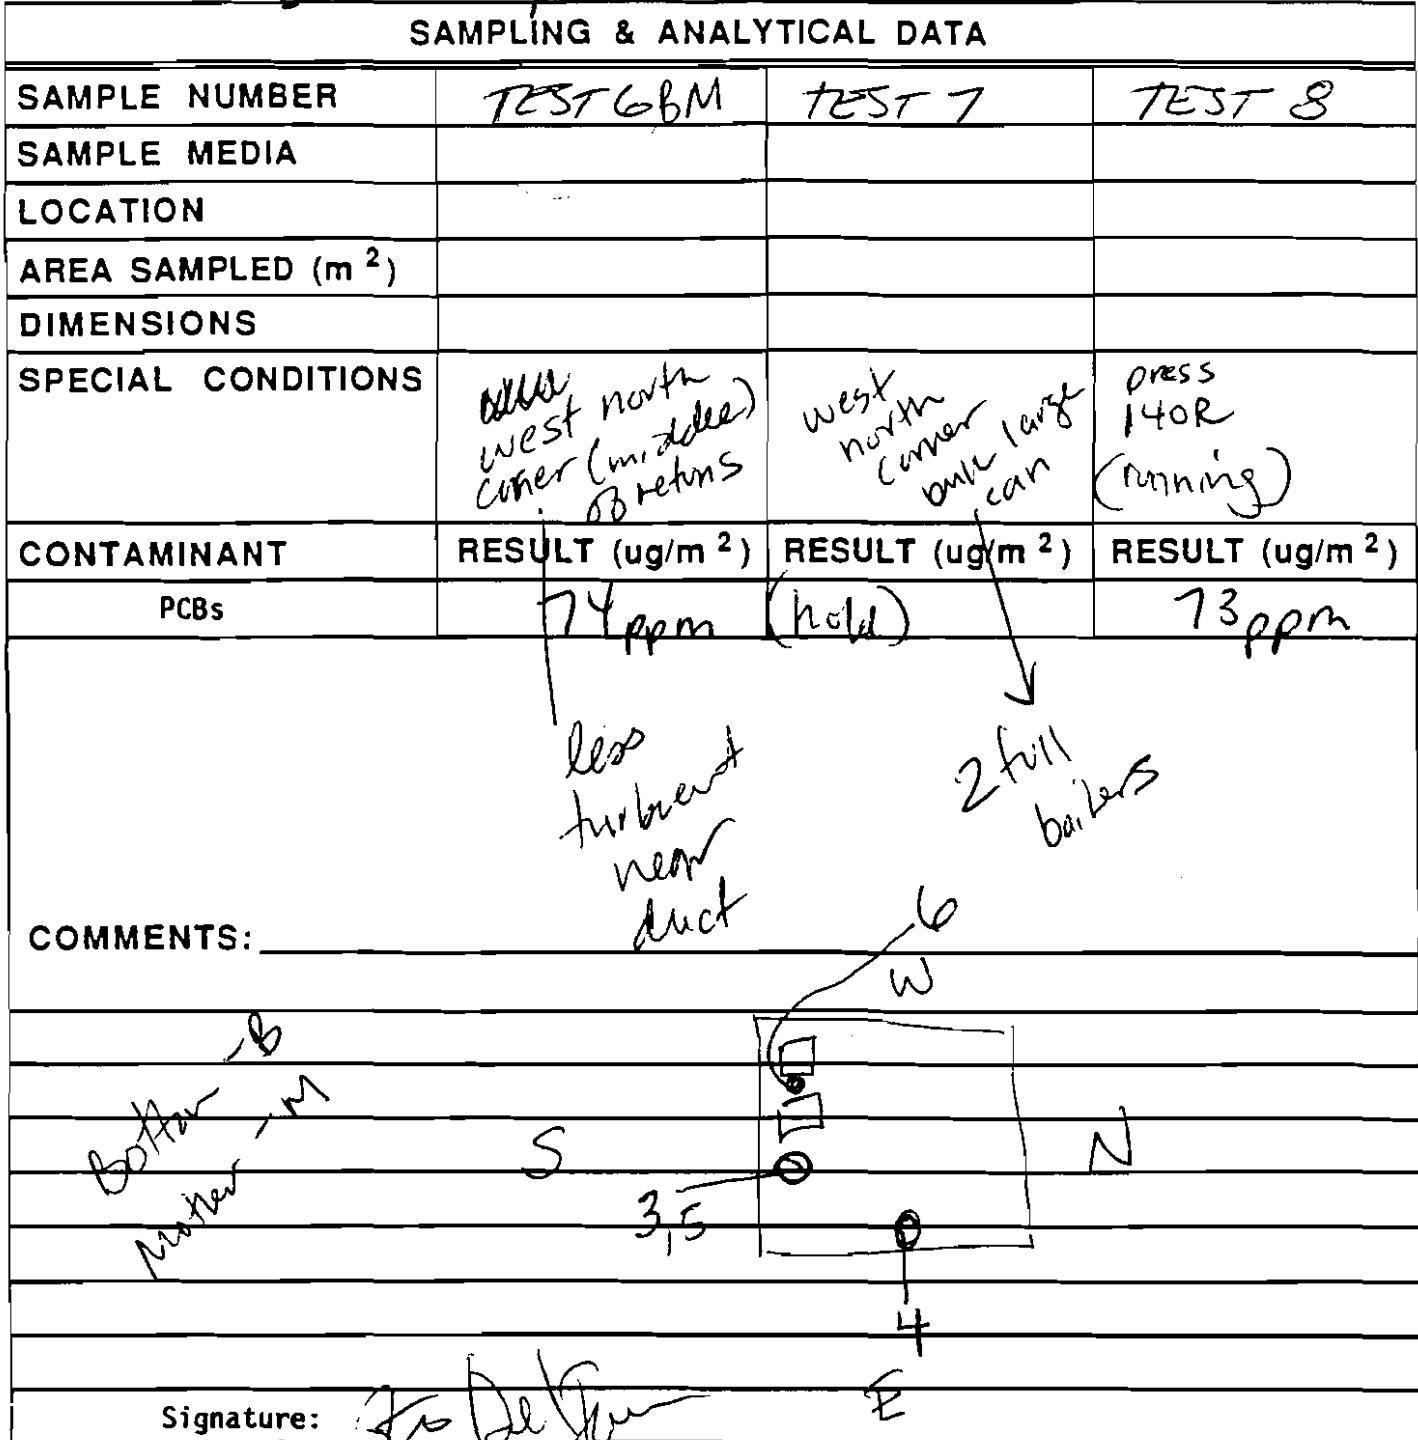 SAMPLING & ANALYTICAL DATA
SAMPLE NUMBER TEST 6BM TEST 7 TEST 8
SAMPLE MEDIA
LOCATION
AREA SAMPLED (m 2)
DIMENSIONS
SPECIAL CONDITIONS
west north
corner (middle)
of retuns
west
north
corner
bulk large
can
press
140R
(running)
CONTAMINANT RESULT (ug/m 2) RESULT (ug/m 2) RESULT (ug/m 2)
PCBs 74 ppm (hold) 73 ppm
less
turbuent
near
duct
2 full
bailers
COMMENTS:
6
W
Bottom -B
Mother -M
S
N
3,5
4
E
Signature: